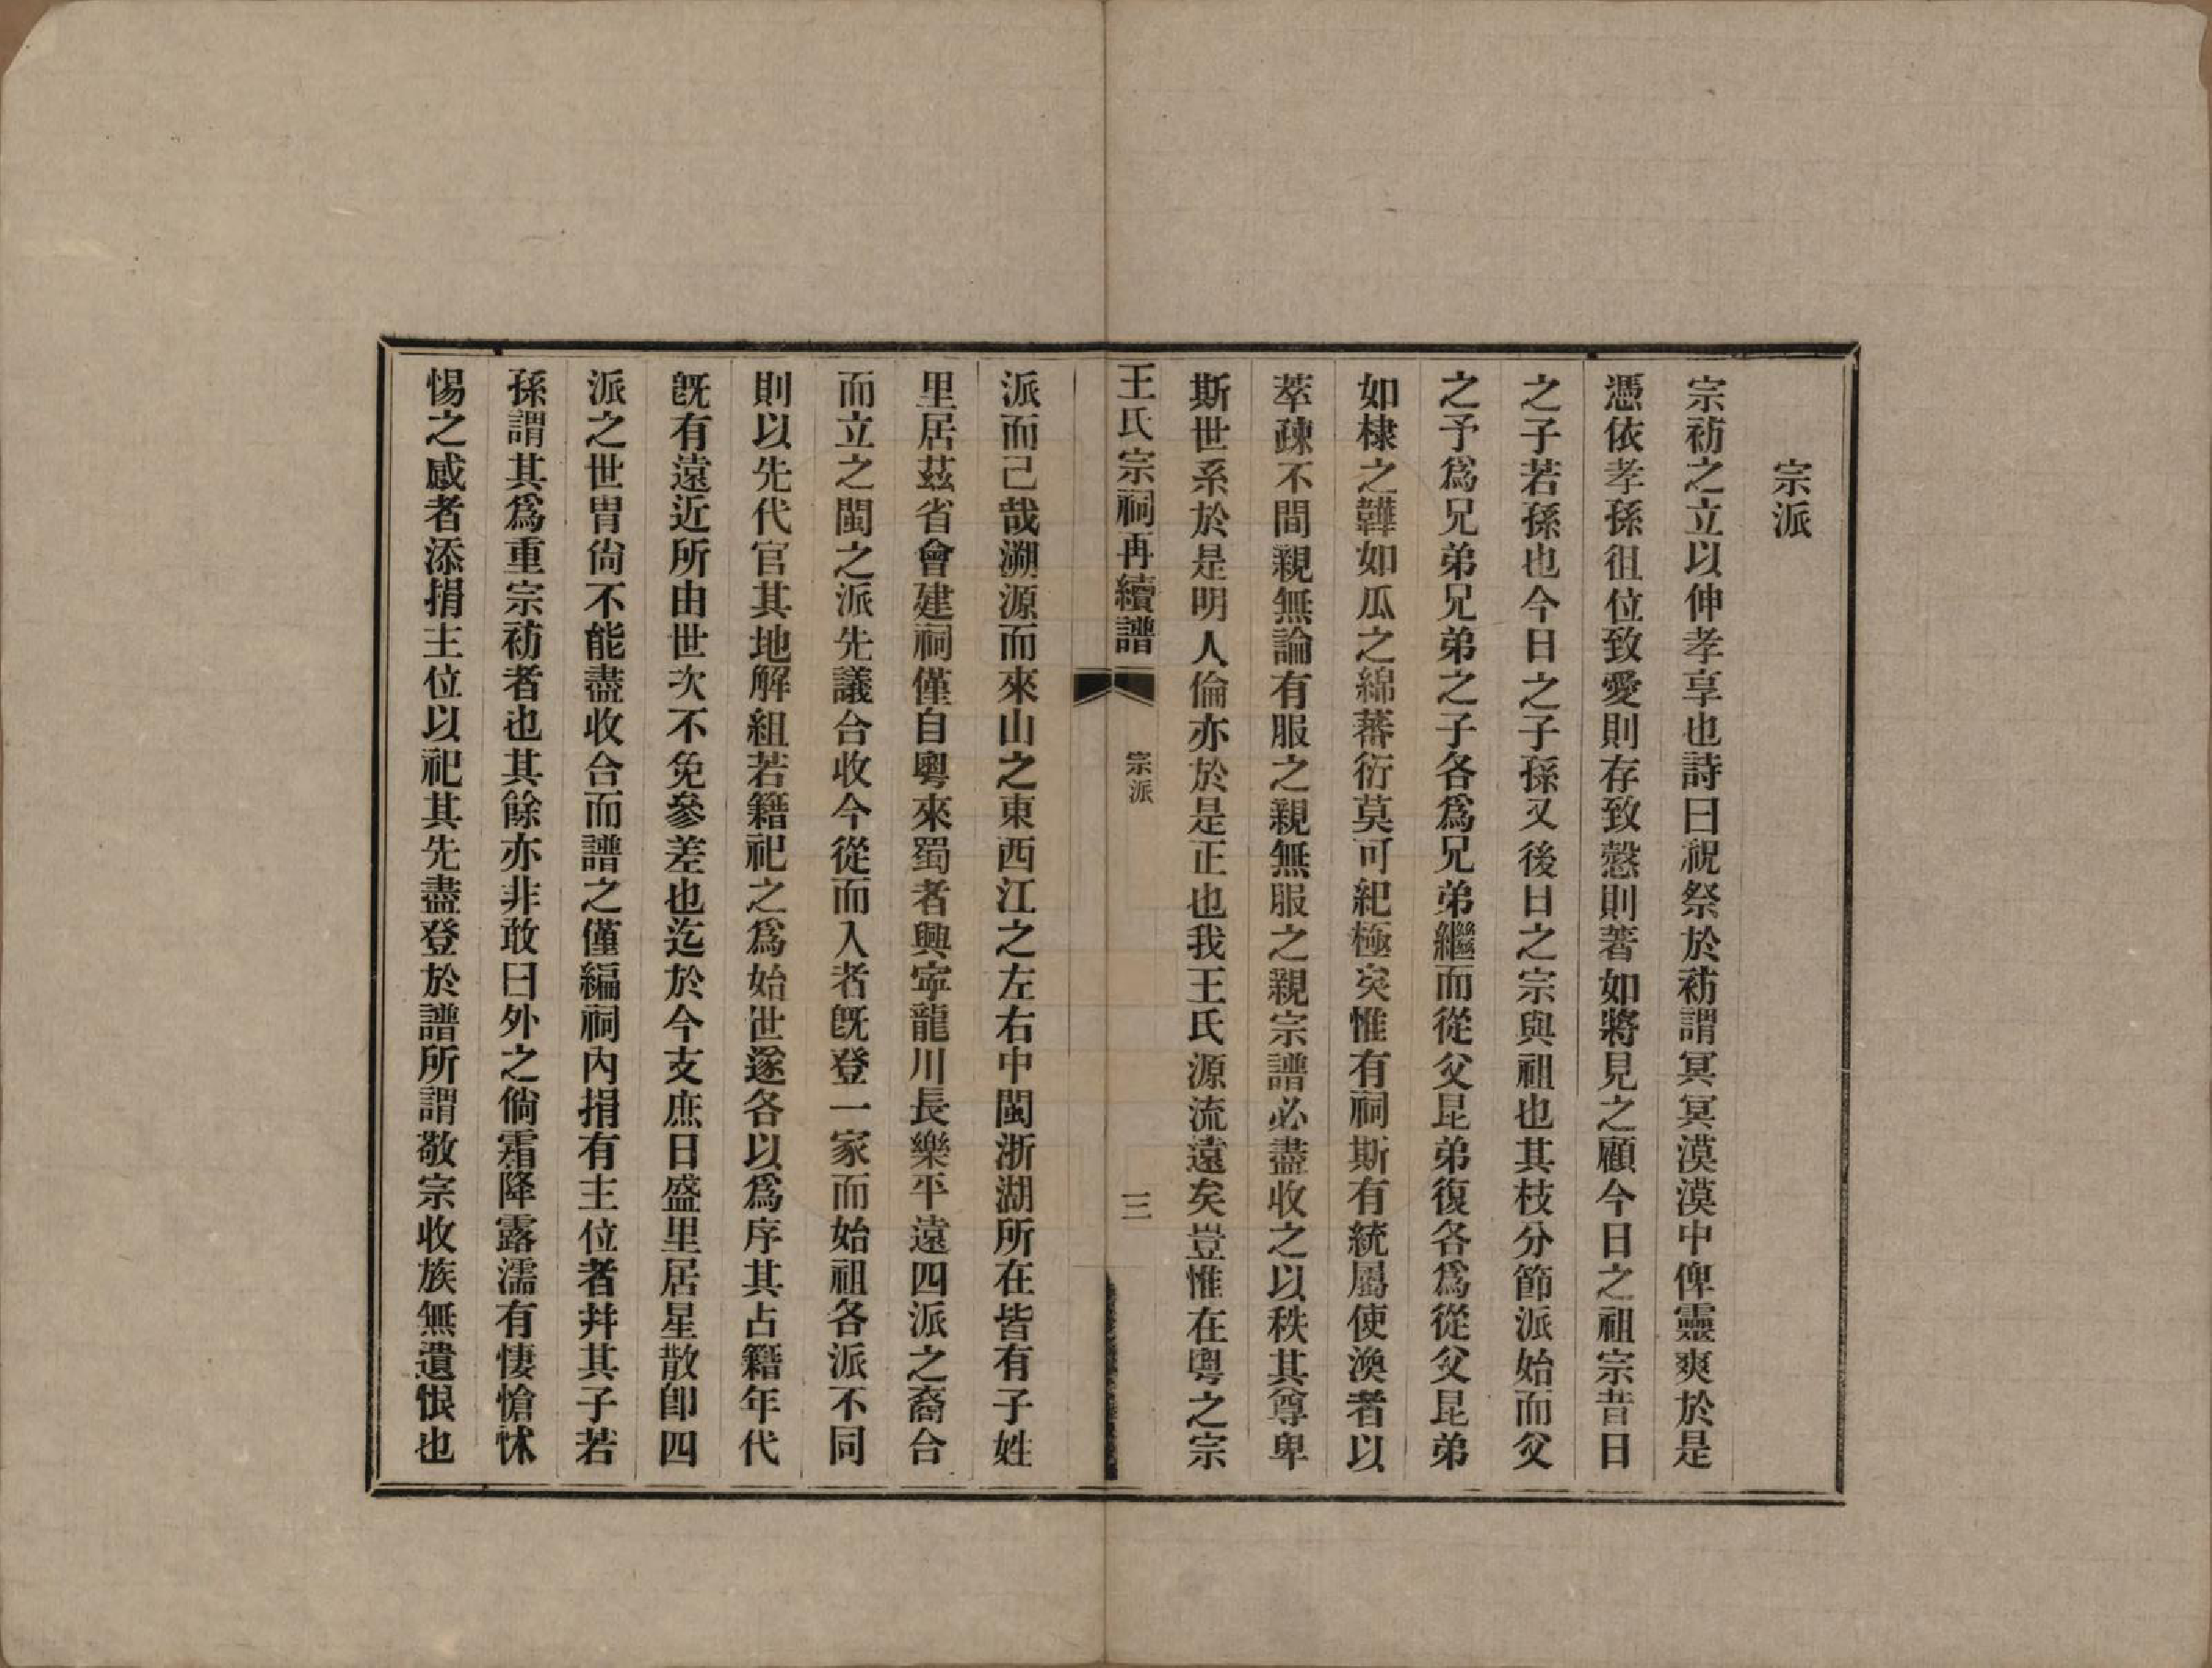 宗派
宗祊之立以伸孝享也詩曰祝祭於祊謂冥冥漠漠中俾靈爽於是
憑依孝孫徂位致愛則存致慤則著如將見之顧今日之祖宗昔日
之子若孫也今日之子孫又後日之宗與祖也其枝分節派始而父
之予爲兄弟兄弟之子各爲兄弟繼而從父昆弟復各爲從父昆弟
如棣之韡如瓜之綿蕃衍莫可紀極矣惟有祠斯有統屬使渙者以
萃疎不間親無論有服之親無服之親宗譜必盡收之以秩其尊卑
斯世系於是明人倫亦於是正也我王氏源流遠矣豈惟在粵之宗
王氏宗祠再續譜 宗派 三
派而己哉溯源而來山之東西江之左右中閩浙湖所在皆有子姓
里居茲省會建祠僅自粵來蜀者興寧龍川長樂平遠四派之裔合
而立之閩之派先議合收今從而入者旣登一家而始祖各派不同
則以先代官其地解組若籍祀之爲始世遂各以爲序其占籍年代
旣有遠近所由世次不免參差也迄於今支庶日盛里居星散卽四
派之世胄尙不能盡收合而譜之僅編祠內捐有主位者幷其子若
孫謂其爲重宗祊者也其餘亦非敢曰外之倘霜降露濡有悽愴怵
惕之感者添捐主位以祀其先盡登於譜所謂敬宗收族無遺恨也